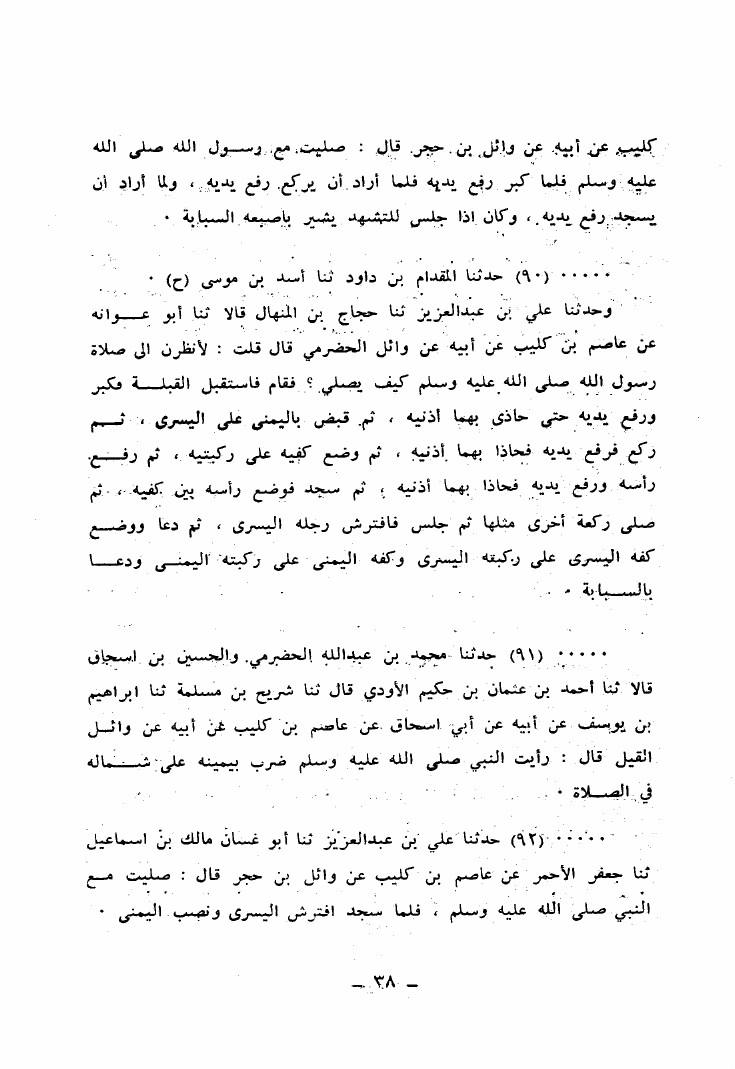 كليب عن أبيه عن وائل بن حجر قال : صليت مع رسول الله صلى الله
عليه وسلم فلما كبر رفع يديه فلما أراد أن يركع رفع يديه ، ولما أراد أن
يسجد رفع يديه ، وكان اذا جلس للتشهد يشير باصبعه السبابة ٠
٠٠٠٠٠ (٩٠) حدثنا المقدام بن داود ثنا أسد بن موسى (ح) ٠
وحدثنا علي بن عبدالعزيز ثنا حجاج بن المنهال قالا ثنا أبو عوانه
عن عاصم بن كليب عن أبيه عن وائل الحضرمي قال قلت : لأنظرن الى صلاة
رسول الله صلى الله عليه وسلم كيف يصلي ؟ فقام فاستقبل القبلة فكبر
ورفع يديه حتى حاذى بهما أذنيه ، ثم قبض باليمنى على اليسرى ، ثم
ركع فرفع يديه فحاذا بهما أذنيه ، ثم وضع كفيه على ركبتيه ، ثم رفع
رأسه ورفع يديه فحاذا بهما أذنيه ، ثم سجد فوضع رأسه بين كفيه ، ثم
صلى ركعة أخرى مثلها ثم جلس فافترش رجله اليسرى ، ثم دعا ووضع
كفه اليسرى على ركبته اليسرى وكفه اليمنى على ركبته اليمنى ودعا
بالسبابة ٠
٠٠٠٠٠ (٩١) حدثنا محمد بن عبدالله الحضرمي والحسين بن اسحاق
قالا ثنا أحمد بن عثمان بن حكيم الأودي قال ثنا شريح بن مسلمة ثنا ابراهيم
بن يوسف عن أبيه عن أبي اسحاق عن عاصم بن كليب عن أبيه عن وائل
القيل قال : رأيت النبي صلى الله عليه وسلم ضرب بيمينه على شماله
في الصلاة ٠
٠٠٠٠٠ (٩٢) حدثنا علي بن عبدالعزيز ثنا أبو غسان مالك بن اسماعيل
ثنا جعفر الأحمر عن عاصم بن كليب عن وائل بن حجر قال : صليت مع
النبي صلى الله عليه وسلم ، فلما سجد افترش اليسرى ونصب اليمنى ٠
ــ ٣٨ ــ